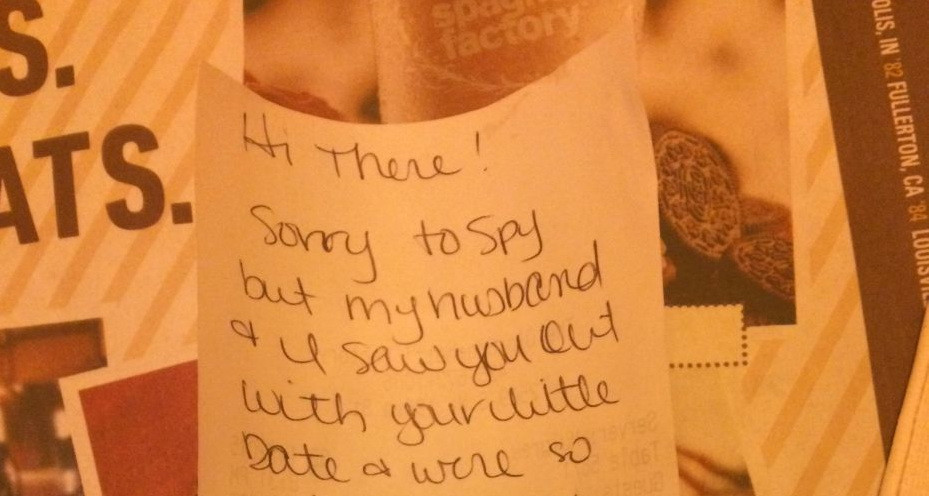 S.
ATS.
spagh
factory
OLIS, IN '82 FULLERTON, CA '84 LOUISVIL
Hi There!
Sorry to Spy
but my husband
& I saw you out
with your little
Date & were so